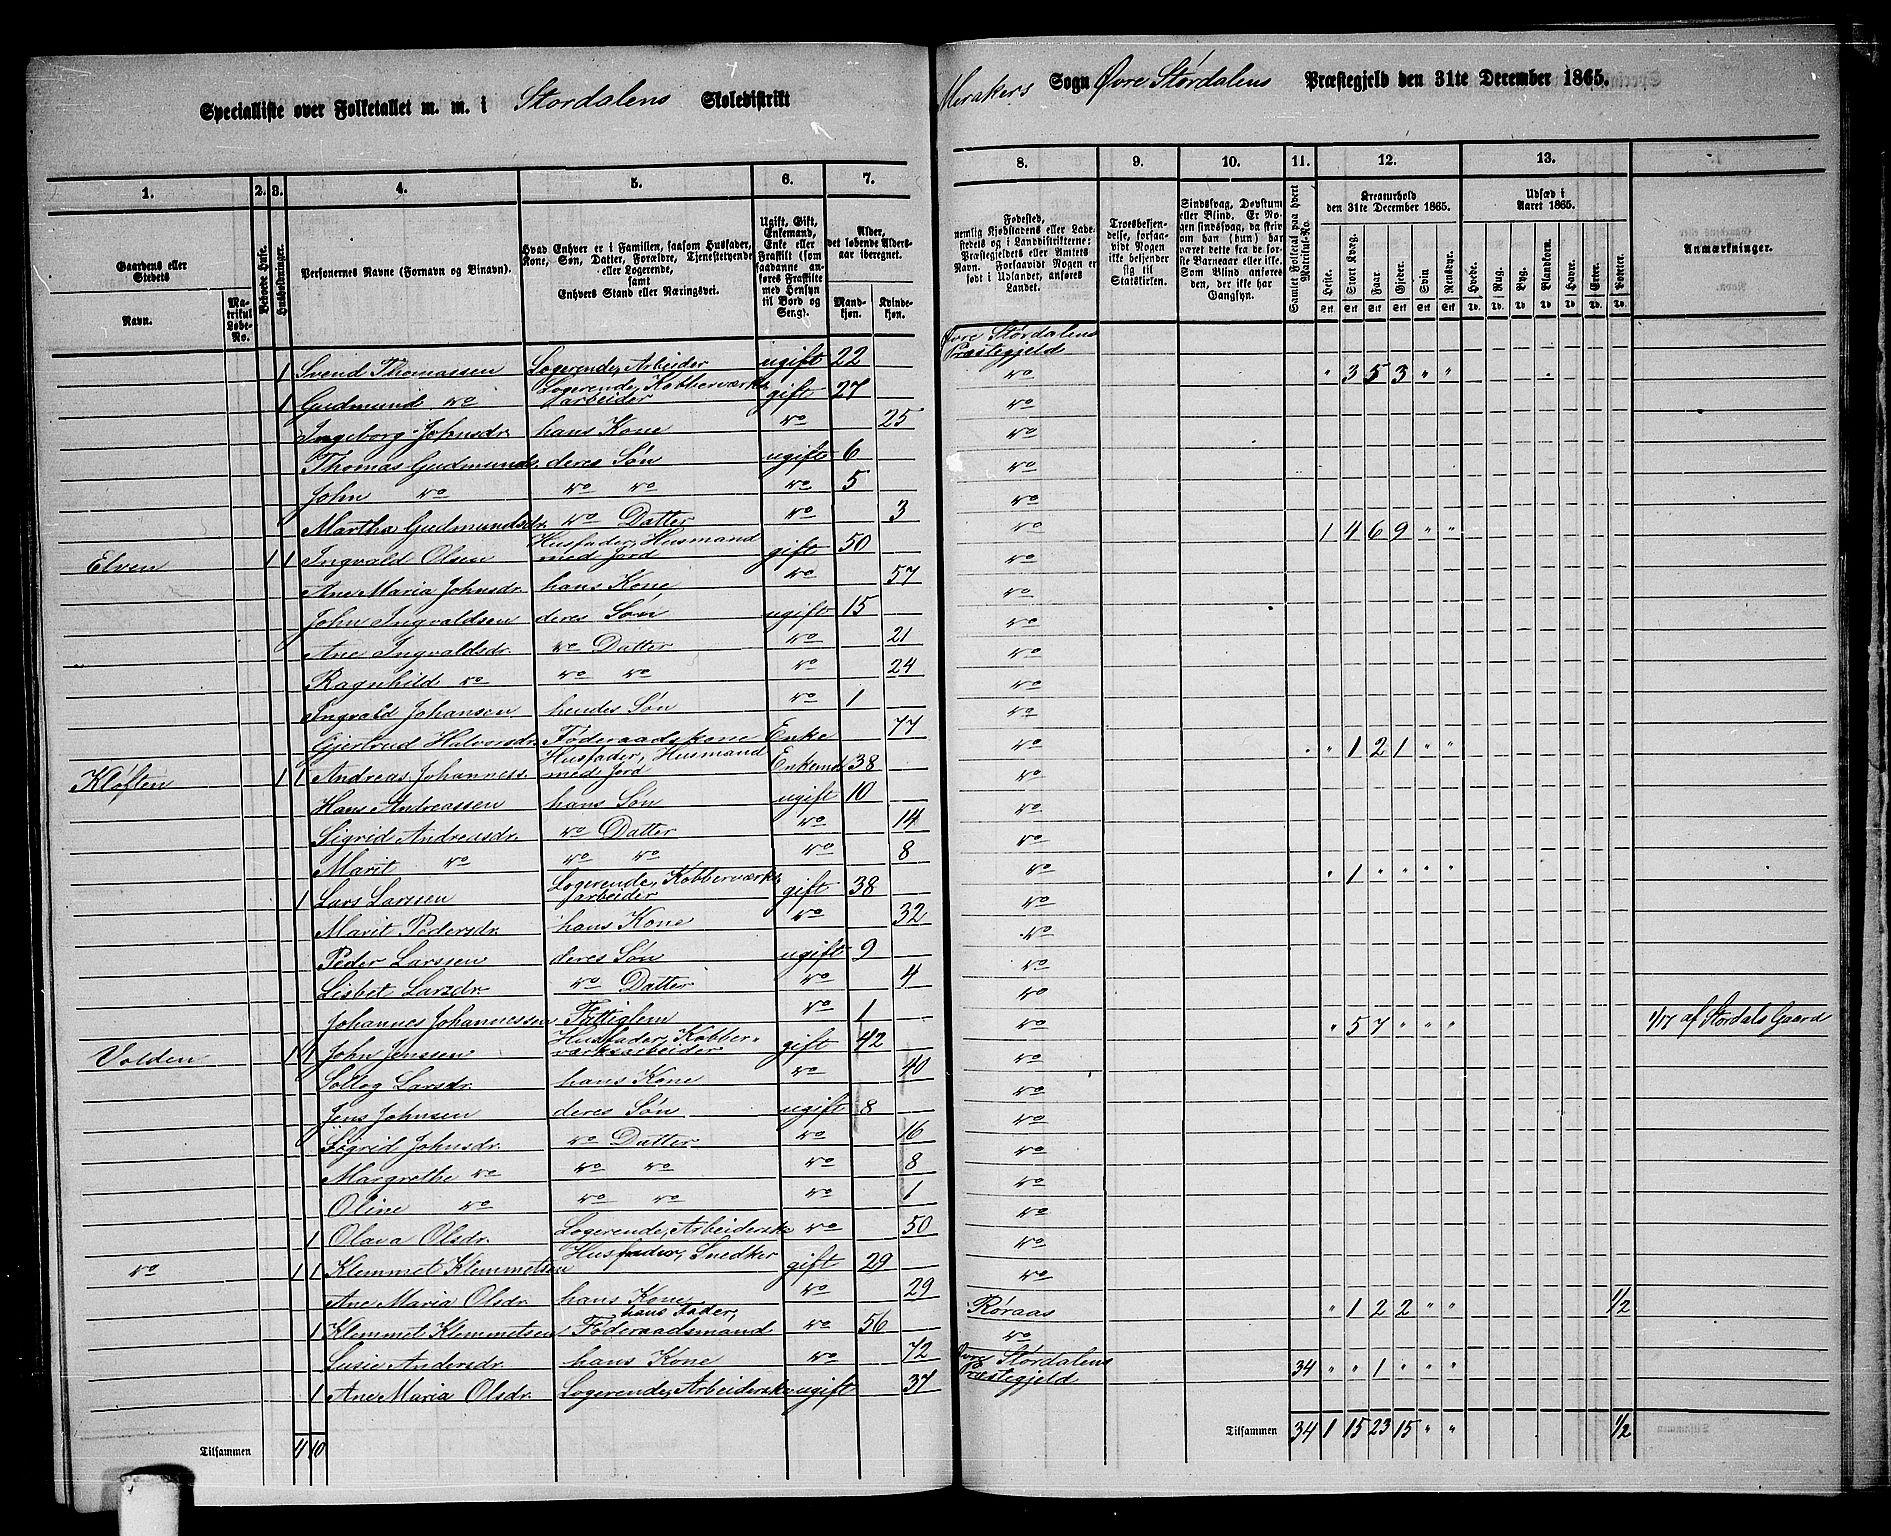 Specialliste over Folketallet m. m. i Stordalens Skoledistrikt Merakers Sogn Øvre Størdalens Præstegjeld den 31te December 1865.
1. 2. 3. 4. 5. 6. 7. 8. 9. 10. 11. 12. 13.
Gaardens eller Stedets Navn. Matrikul Løbe-No. Beboede Huse. Husholdninger. Personernes Navne (Fornavn og Binavn).
Hvad Enhver er i Familien, saasom Husfader, Kone, Søn, Datter, Forældre, Tjenestetyende eller Logerende, samt Enhvers Stand eller Næringsvei.
Ugift, Gift, Enkemand, Enke eller Fraskilt (som saadanne anføres Fraskilte med Hensyn til Bord og Seng).
Alder, det løbende Aldersaar iberegnet. Mandkjøn. Kvindekjøn.
Fødested, nemlig Kjøbstadens eller Ladestedets og i Landdistrikterne: Præstegjeldets eller Amtets Navn. Forsaavidt Nogen er født i Udlandet, anføres Landet.
Troesbekjendelse, forsaavidt Nogen ikke bekjender sig til Statskirken.
Sindssvag, Døvstum eller Blind. Er Nogen sindssvag, da skrives om han (hun) har været dette fra de første Barneaar eller ikke. Som Blind anføres den, der ikke har Gangsyn.
Samlet Folketal paa hvert Matrikul-No.
Kreaturhold den 31te December 1865. Heste. Stort Kvæg. Faar. Gjeder. Svin. Rensdyr.
Udsæd i Aaret 1865. Hvede. Rug. Byg. Blandkorn. Havre. Erter. Poteter.
Anmærkninger.
1 Svend Thomassen Logerende, Arbeider ugift 22 Øvre Størdalens Præstegjeld
1 Gudmund do Logerende, Kobberværksarbeider gift 27 do " 3 5 3 " "
Ingeborg Johnsdr. hans Kone do 25 do
Thomas Gudmunds. deres Søn ugift 6 do
John do do do do 5 do
Martha Gudmundsdr. do Datter do 3 do
Elven 1 1 Ingvald Olsen Husfader, Husmand med Jord gift 50 do 1 4 6 9 " "
Ane Maria Johnsdr. hans Kone do 57 do
John Ingvaldsen deres Søn ugift 15 do
Ane Ingvaldsdr. do Datter do 21 do
Ragnhild do do do do 24 do
Ingvald Johansen hendes Søn do 1 do
Gjertrud Halvorsdr. Føderaadskone Enke 77 do
Kløften 1 1 Andreas Johanness. Husfader, Husmand med Jord Enkemd. 38 do " " 1 2 1 " "
Hans Andreassen hans Søn ugift 10 do
Sigrid Andreasdr. do Datter do 14 do
Marit do do do do 8 do
1 Lars Larssen Logerende, Kobberværksarbeider gift 38 do " 1 " " " "
Marit Pedersdr. hans Kone do 32 do
Peder Larssen deres Søn ugift 9 do
Lisbet Larsdr. do Datter do 4 do
Johannes Johannessen Fattiglem do 1 do
Volden 1 1 John Jenssen Husfader, Kobberværksarbeider gift 42 do " 5 7 " " " 1/17 af Stordals Gaard
Sollog Larsdr. hans Kone do 40 do
Jens Johnsen deres Søn ugift 8 do
Sigrid Johnsdr. do Datter do 16 do
Margrethe do do do do 8 do
Oline do do do do 1 do
1 Olava Olsdr. Logerende, Arbeiderske do 50 do
do 1 1 Klemmet Klemmetsen Husfader, Snedker gift 29 do
Ane Maria Olsdr. hans Kone do 29 do
1 Klemmet Klemmetsen hans Fader, Føderaadsmand do 56 Røraas " 1 2 2 " " 1/2
Susie Andersdr. hans Kone do 72 do
1 Ane Maria Olsdr. Logerende, Arbeiderske ugift 37 Øvre Størdalens Præstegjeld 34 " " 1 " " "
Tilsammen 4 10 Tilsammen 34 1 15 23 15 " " 1/2